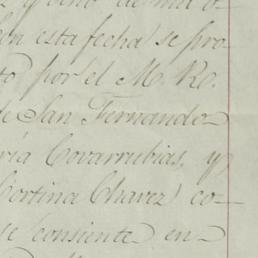 y ocho de mil o
en esta fecha se pro-
to por el M. Ro.
de San Fernando
ría Covarrubias, y
Cortina Chavez co-
se consiente en-